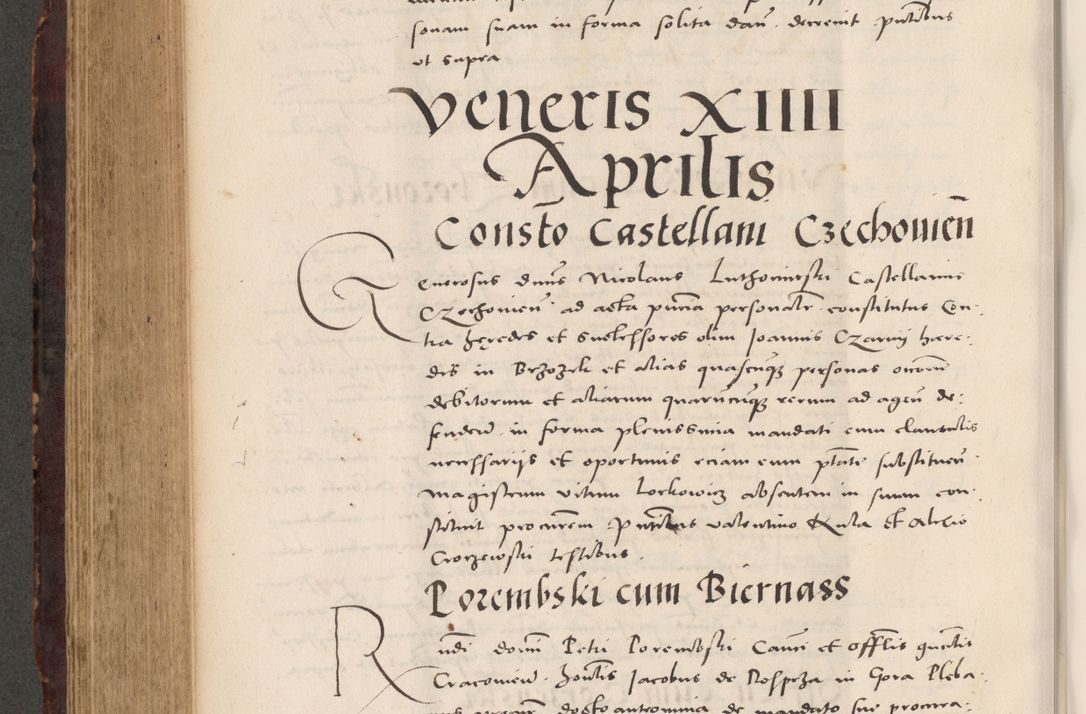 sonam suam in forma solita dan̄. decrevit pūtibus
ut supra
Veneris XIIII
Aprilis
Consto Castellani Czechovien̄
Generosus dnūs Nicolaus Luthomirski Castellanus
Czechovien̄ ad acta pūcia personalr̄ constitutus Con-
tra heredes et successores olim Joannis Czarny hære-
dis in Brzozek et alias quascunq̄ personas omniū
debitorum et aliarum quarūcūq̄ rerum ad agen̄ de-
fenden̄ in forma plenissima mandati cum clausulis
necessarijs et oportunis eciam cum ptāte substituen̄
Magistrum Vitum Lorkowicz absentem in suum con-
stituit procurem pūtibus Valentino Kula et Alexio
Gorzewski testibus.
Porembski cum Biernass
Rūdi domī Petri Porembski Canci et offlis gnālis
Cracovien̄. honlis Jacobus de Rosprza in Gora Pleba-